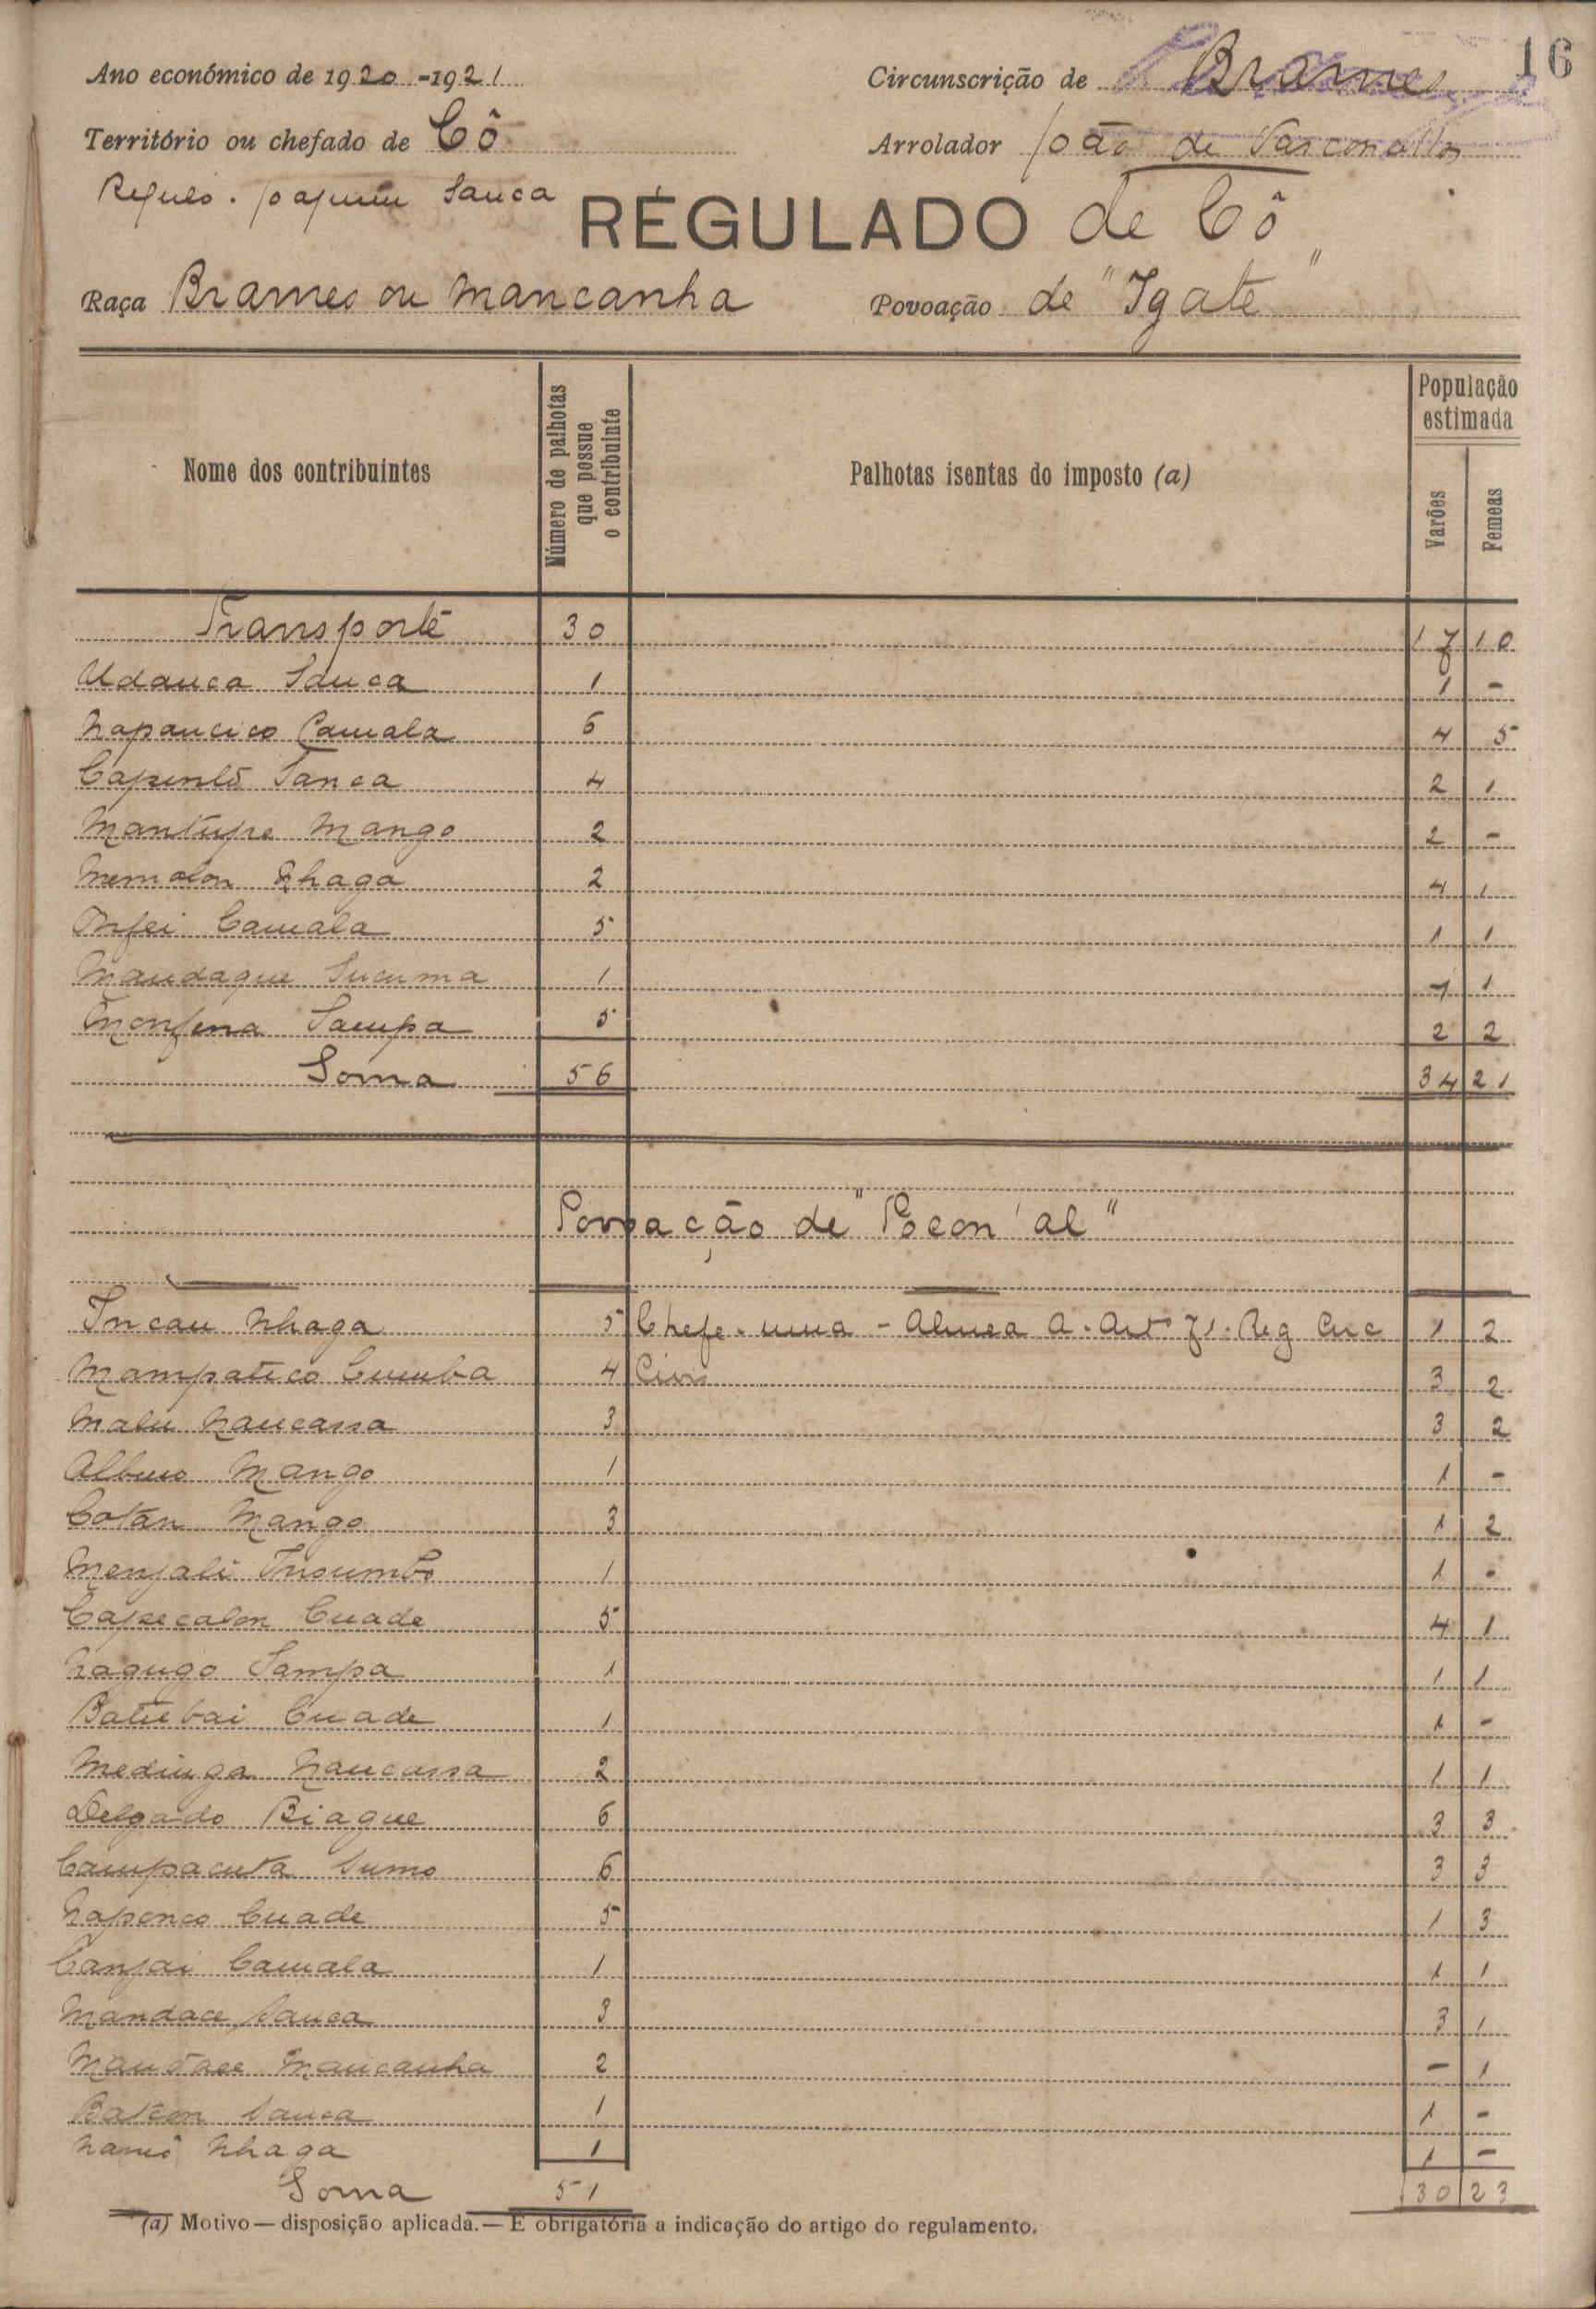 16
Ano económico de 1920-1921
Circunscrição de Brames
Território ou chefado de Cô
Arrolador João de Vasconcellos
Regulo. Joaquim Sanca
RÉGULADO de Cô
Raça Brames ou Mancanha
Povoação de "Igate"
Nome dos contribuintes
Número de palhotas que possue o contribuinte
Palhotas isentas do imposto (a)
População estimada
Varões
Femeas
Transporte 30 17 10
Udanca Sanca 1 1 -
Napancico Camala 6 4 5
Capenlô Sanca 4 2 1
Mantupe Mango 2 2 -
Nhaga 2 4 1
Camala 5 1 1
Mandaque Sucuma 1 1 1
Sampa 5 2 2
Soma 56 34 21
Povoação de "Pocon'al"
Incau Nhaga 5 Chefe. uma - Alinea a. Artº 71. Reg Circ 1 2
Mampatico Cumba 4 Civis 3 2
Malu Naucassa 3 3 2
Albino Mango 1 1 -
Cotan Mango 3 1 2
Menjali Insumbo 1 1 -
Capecalon Cuade 5 4 1
Nagugo Sampa 1 1 1
Batiebai Cuade 1 1 -
Medinga Naucassa 2 1 1
Delgado Biague 6 3 3
Campacuta Sumo 6 3 3
Naponco Cuade 5 1 3
Canjai Camala 1 1 1
Mandace Sanca 3 3 1
Mancanha 2 - 1
Batcon Sanca 1 1 -
Namô Nhaga 1 1 -
Soma 51 30 23
(a) Motivo — disposição aplicada. — É obrigatória a indicação do artigo do regulamento.